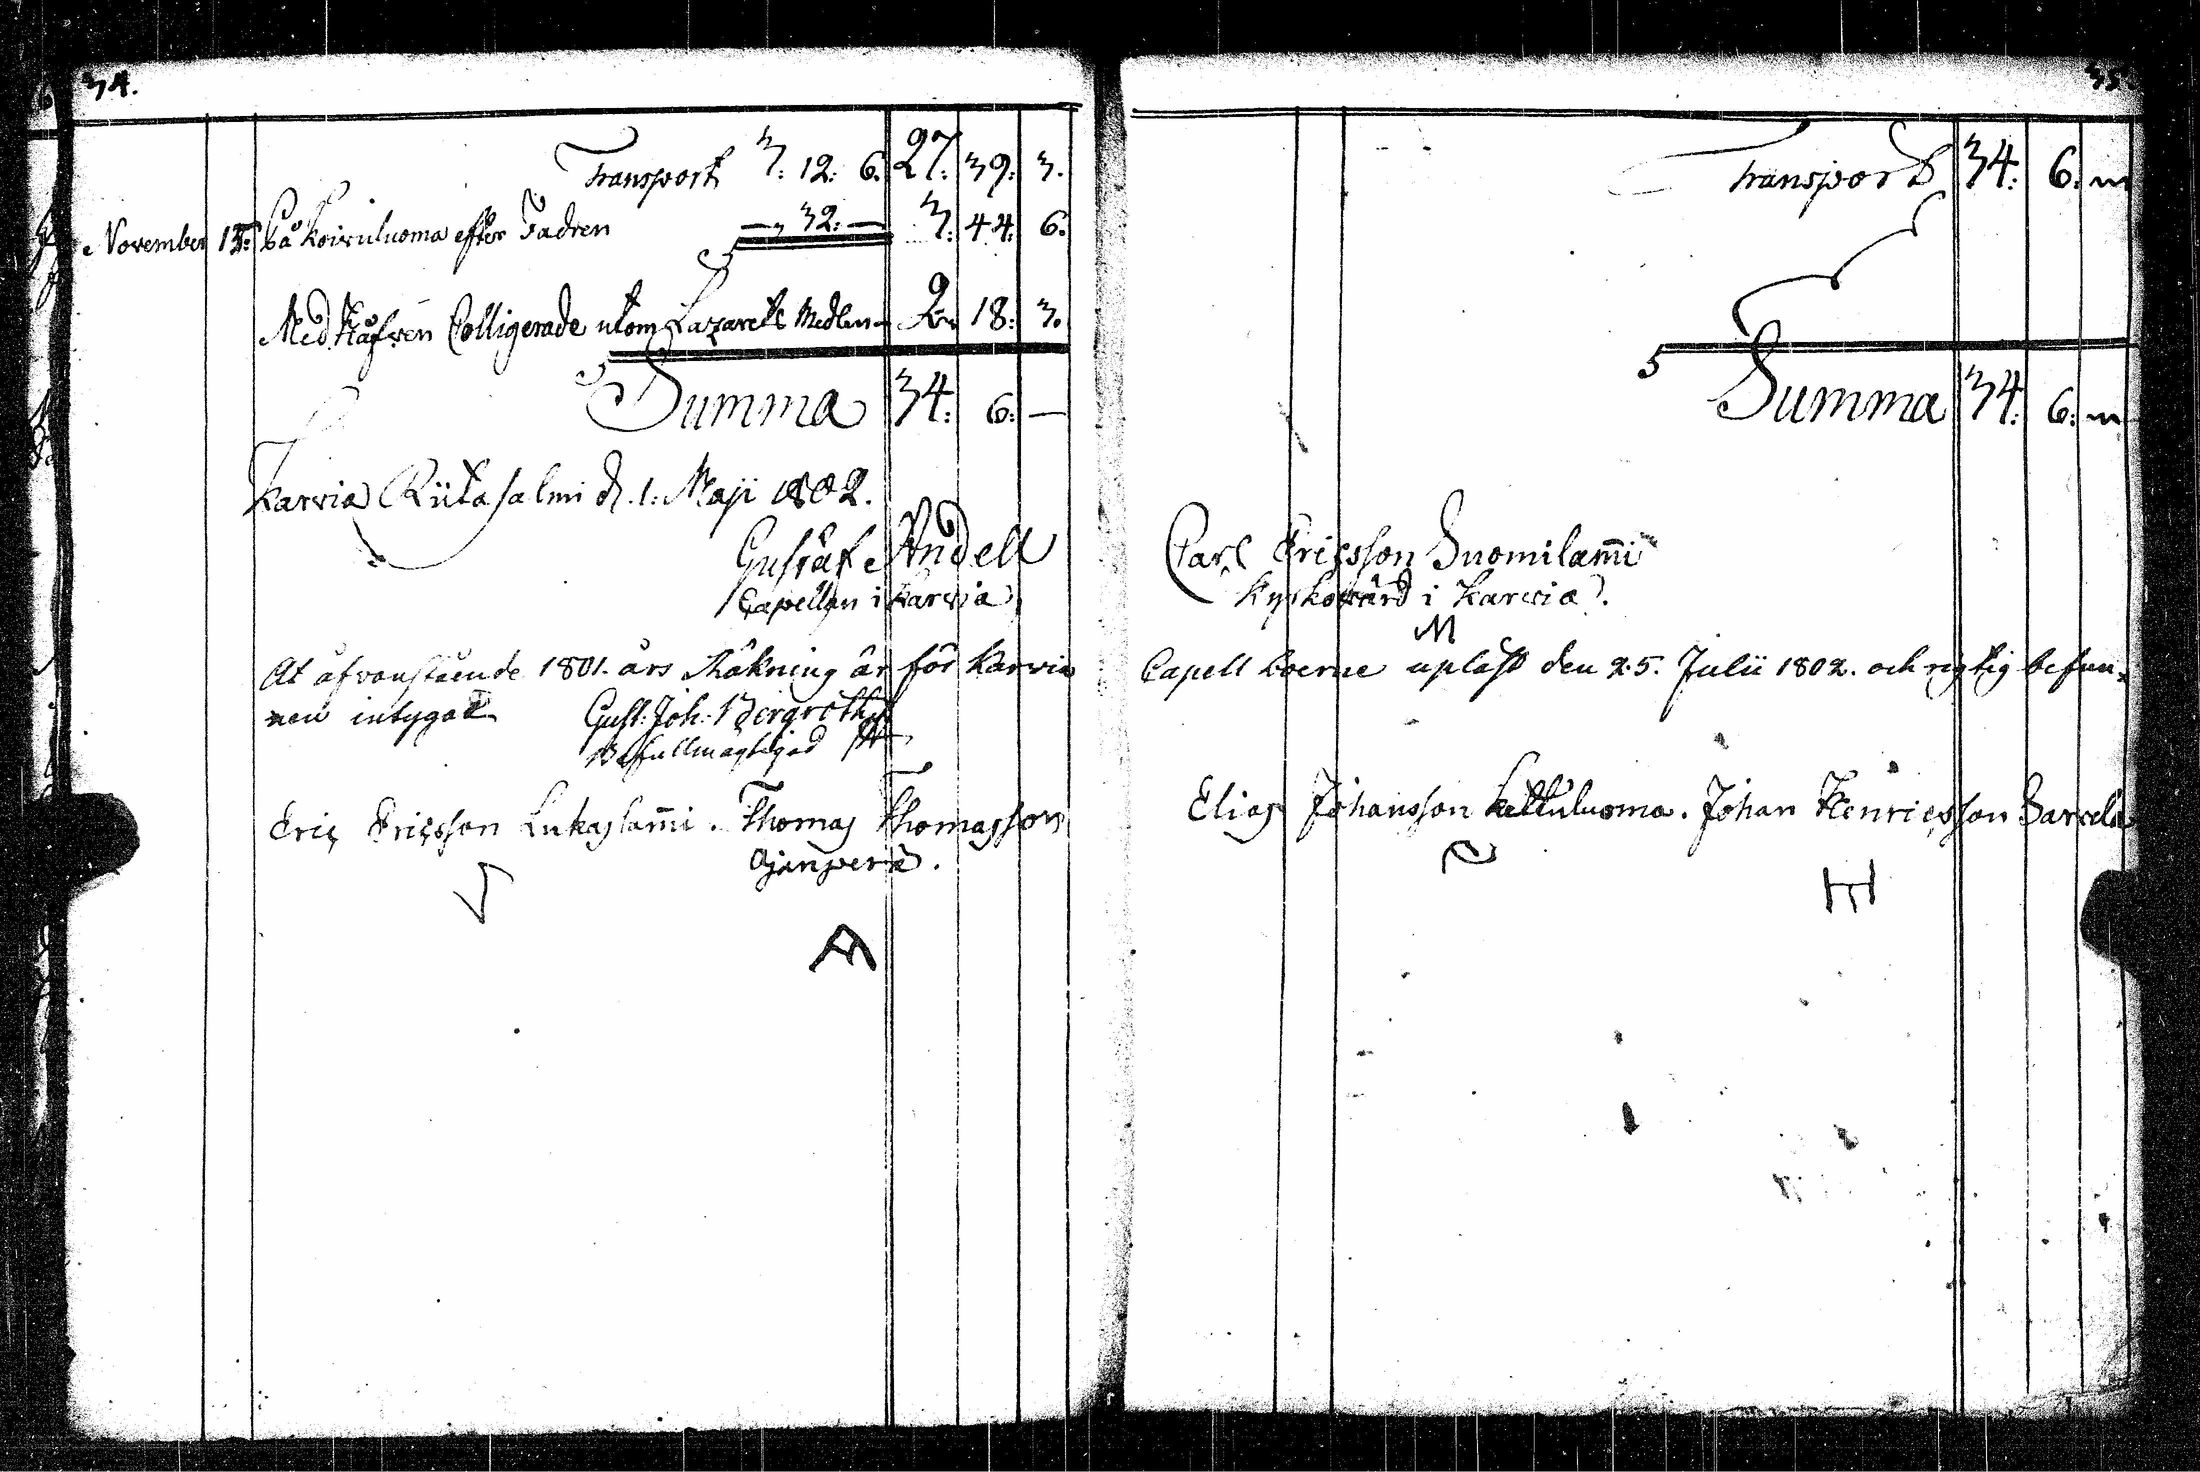 34.
Transport 3: 12: 6. 27: 39: 3.
November 15: På Koivuluoma efter Fadren — 32: — 3: 44: 6.
Med Håfven Colligerade utom Lazarets Medlen 2: 18: 3.
Summa 34: 6: —
Karvia Riitasalmi d. 1: Maji 1802.
Gustaf Andell
Capellan i Karvia
At åfvanstående 1801. års Räkning är för Karvia
nen intygar Gust: Joh: Bergroth
Befullmägtigad
Eric Ericsson Lukaslam̄i. Thomas Thomasson
Ojanperä.
35
Transport 34: 6:
Summa 34: 6:
Carl Ericsson Suomilam̄i
Kyrkovärd i Karvia.
M
Capell boerne upläst den 25. Julii 1802. och rigtig befun-
Elias Johansson Kettuluoma. Johan Henricsson